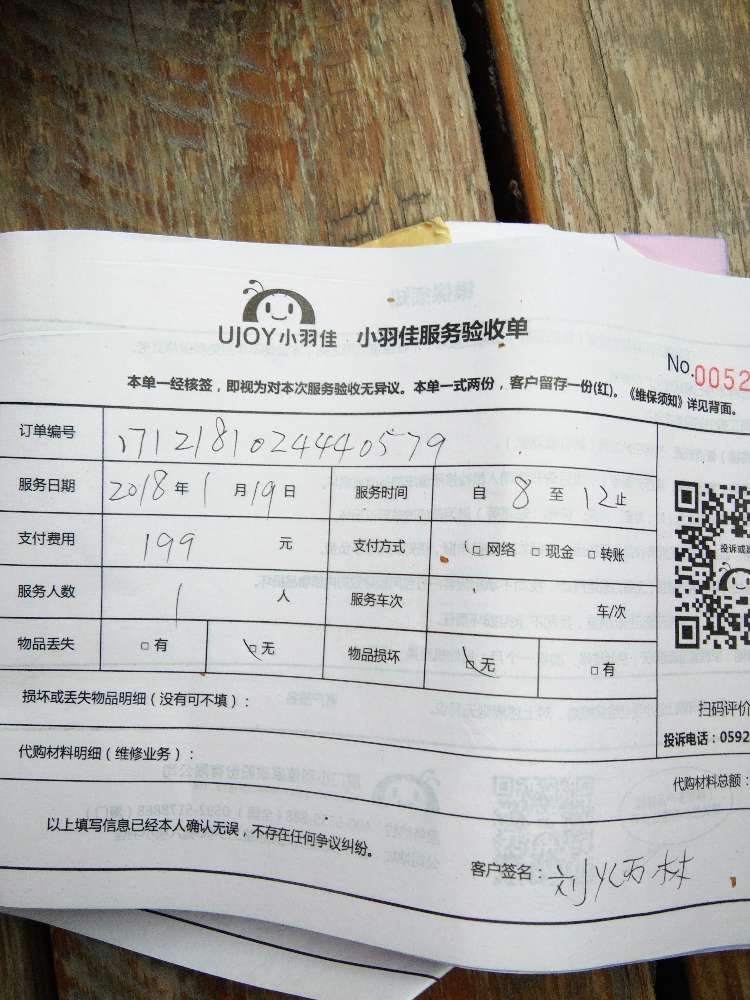 UJOY小羽佳 小羽佳服务验收单
No.0052
本单一经核签，即视为对本次服务验收无异议。本单一式两份，客户留存一份(红)。《维保须知》详见背面。
订单编号 1712181024440579
服务日期 2018年1月19日 服务时间 自8至12止
支付费用 199 元 支付方式 □网络 □现金 □转账
投诉或
服务人数 1 人 服务车次 车/次
物品丢失 □有 □无 物品损坏 □无 □有
损坏或丢失物品明细（没有可不填）：
扫码评价
投诉电话：0592
代购材料明细（维修业务）：
代购材料总额：
以上填写信息已经本人确认无误，不存在任何争议纠纷。
客户签名：刘炳林